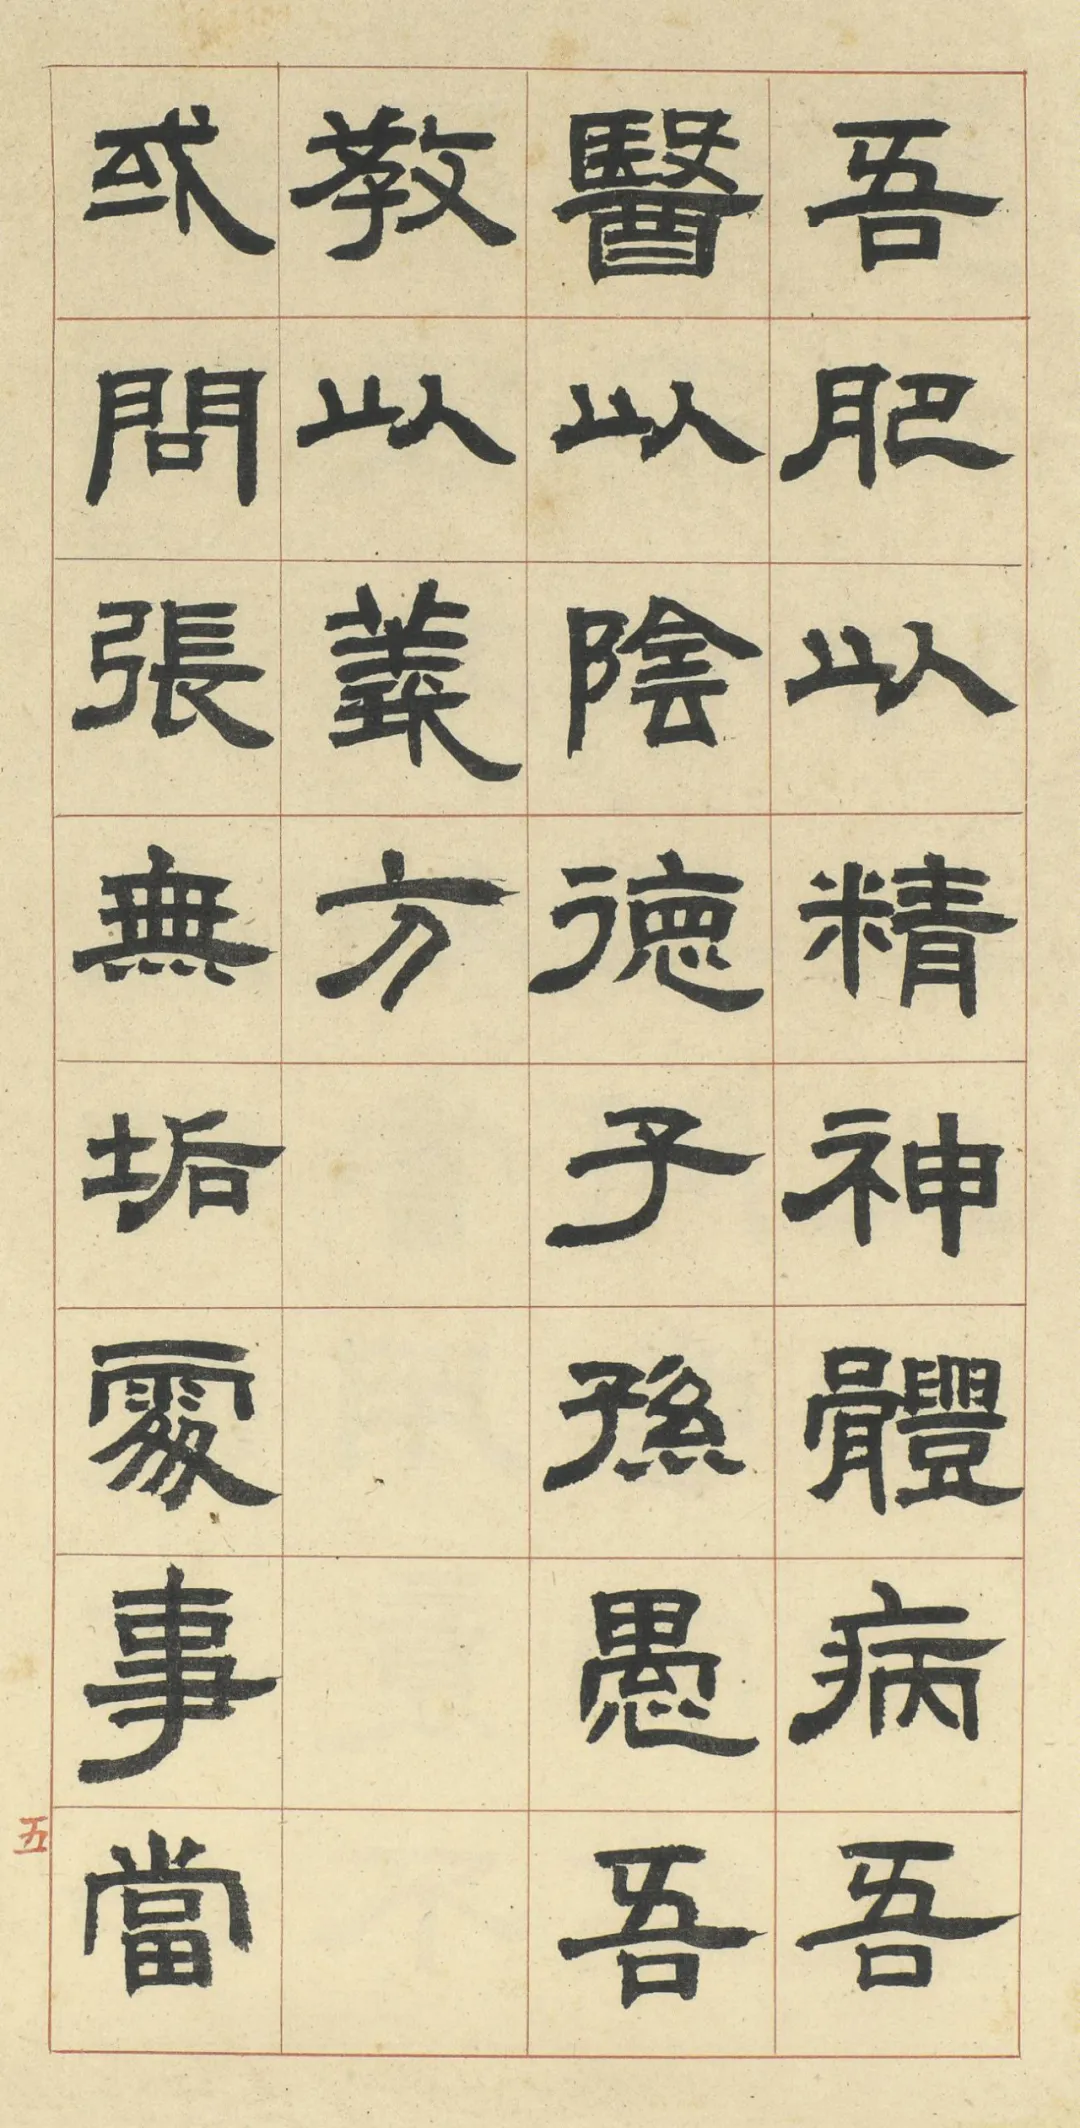 吾肥以精神體病吾
醫以陰德子孫愚吾
教以義方
或問張無垢處事當
五